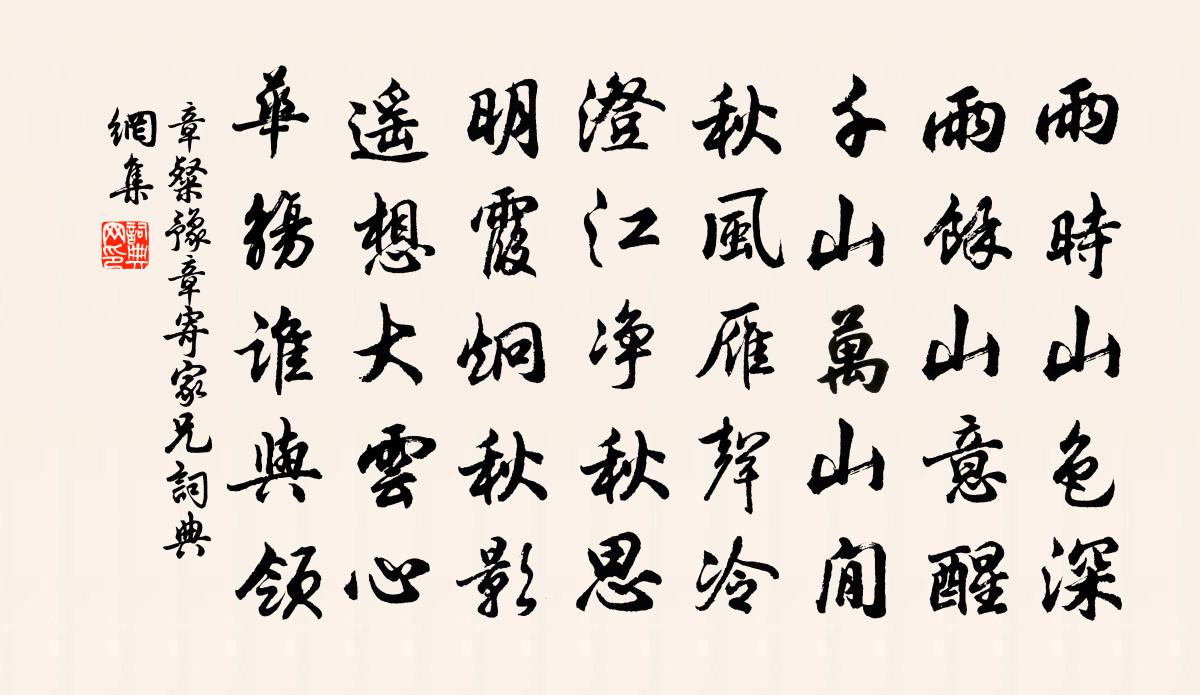 雨時山色深
雨餘山意醒
千山萬山間
秋風雁聲冷
澄江淨秋思
明霞炯秋影
遥想大雲心
華觴誰與領
章粲豫章寄家兄詞典
網集
詞典网印